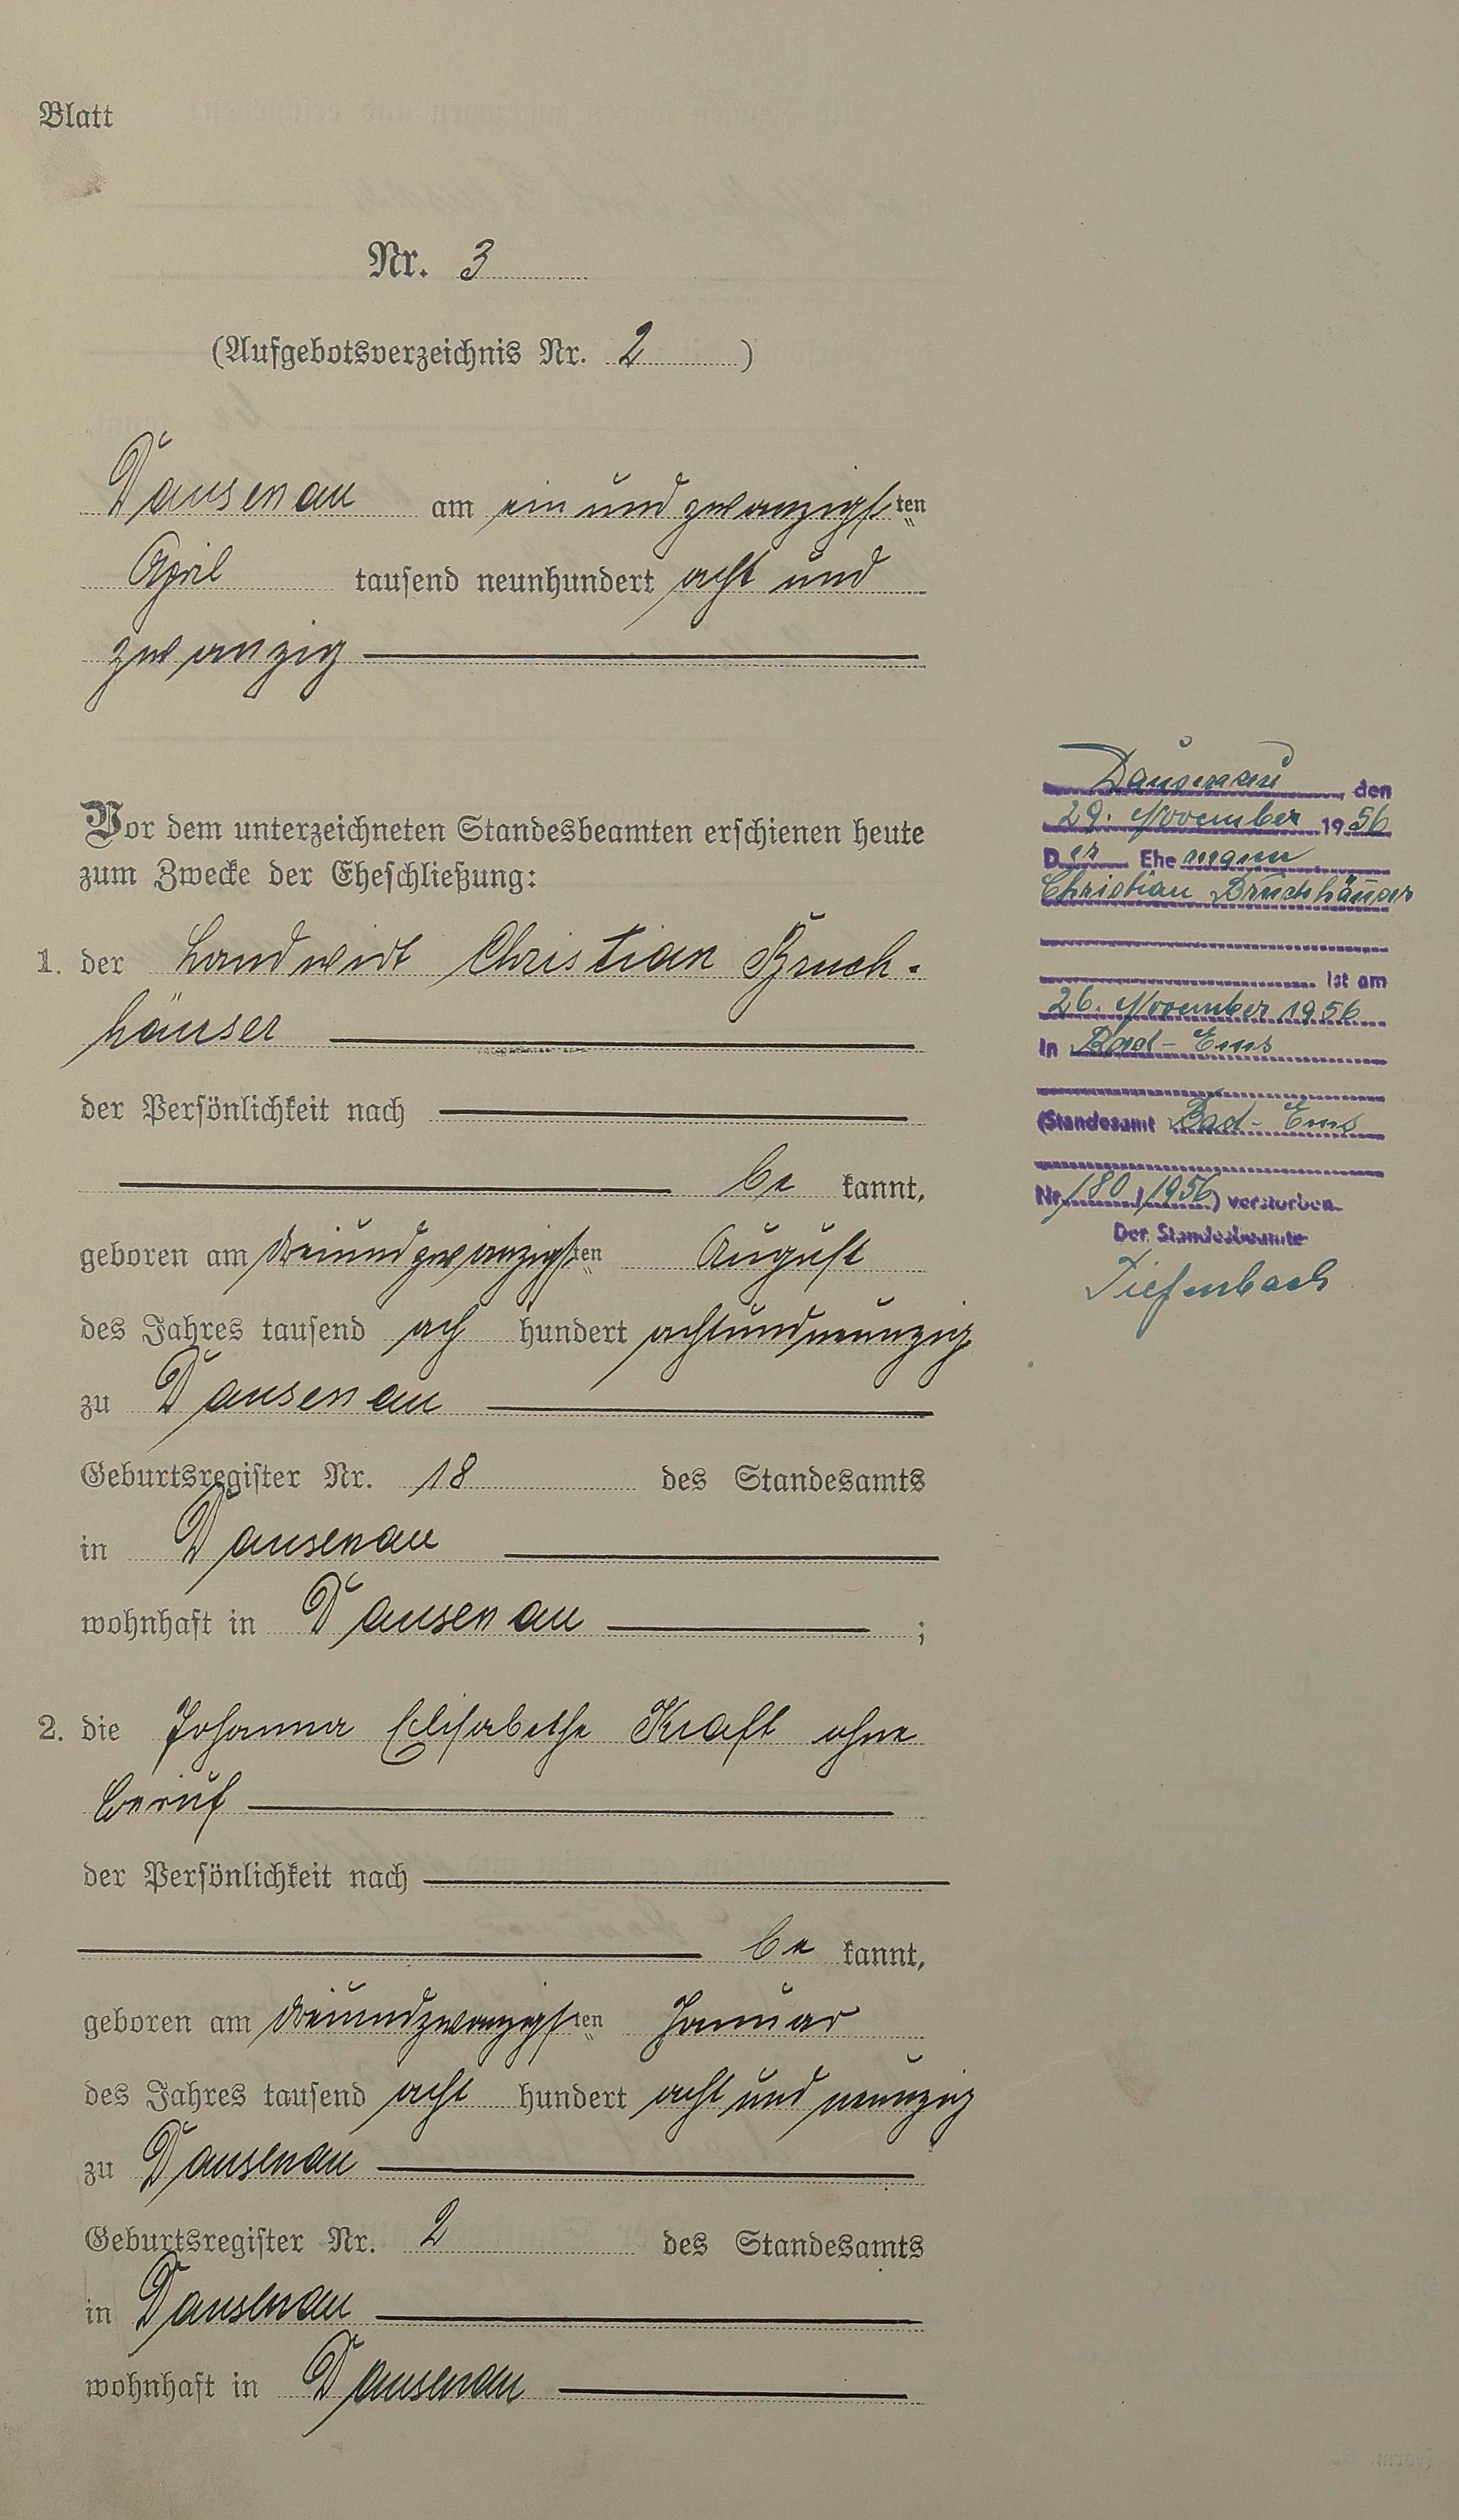 Blatt
Nr. 3
(Aufgebotsverzeichnis Nr. 2 )
Dausenau am ein und zwanzigsten
April tausend neunhundert acht und
zwanzig
Vor dem unterzeichneten Standesbeamten erschienen heute
zum Zwecke der Eheschließung:
1. der Landwirt Christian Bruch-
häuser
der Persönlichkeit nach
be kannt,
geboren am dreiundzwanzigsten August
des Jahres tausend ach hundert achtundneunzig
zu Dausenau
Geburtsregister Nr. 18 des Standesamts
in Dausenau
wohnhaft in Dausenau ;
2. die Johanna Elisabethe Kraft ohne
Beruf
der Persönlichkeit nach
be kannt,
geboren am dreiundzwanzigsten Januar
des Jahres tausend acht hundert acht und neunzig
zu Dausenau
Geburtsregister Nr. 2 des Standesamts
in Dausenau
wohnhaft in Dausenau
Dausenau, den
29. November 1956
Der Ehemann
Christian Bruchhäuser
ist am
26. November 1956
in Bad-Ems
(Standesamt Bad-Ems
Nr. 180/1956) verstorben.
Der Standesbeamte
Tiefenbach